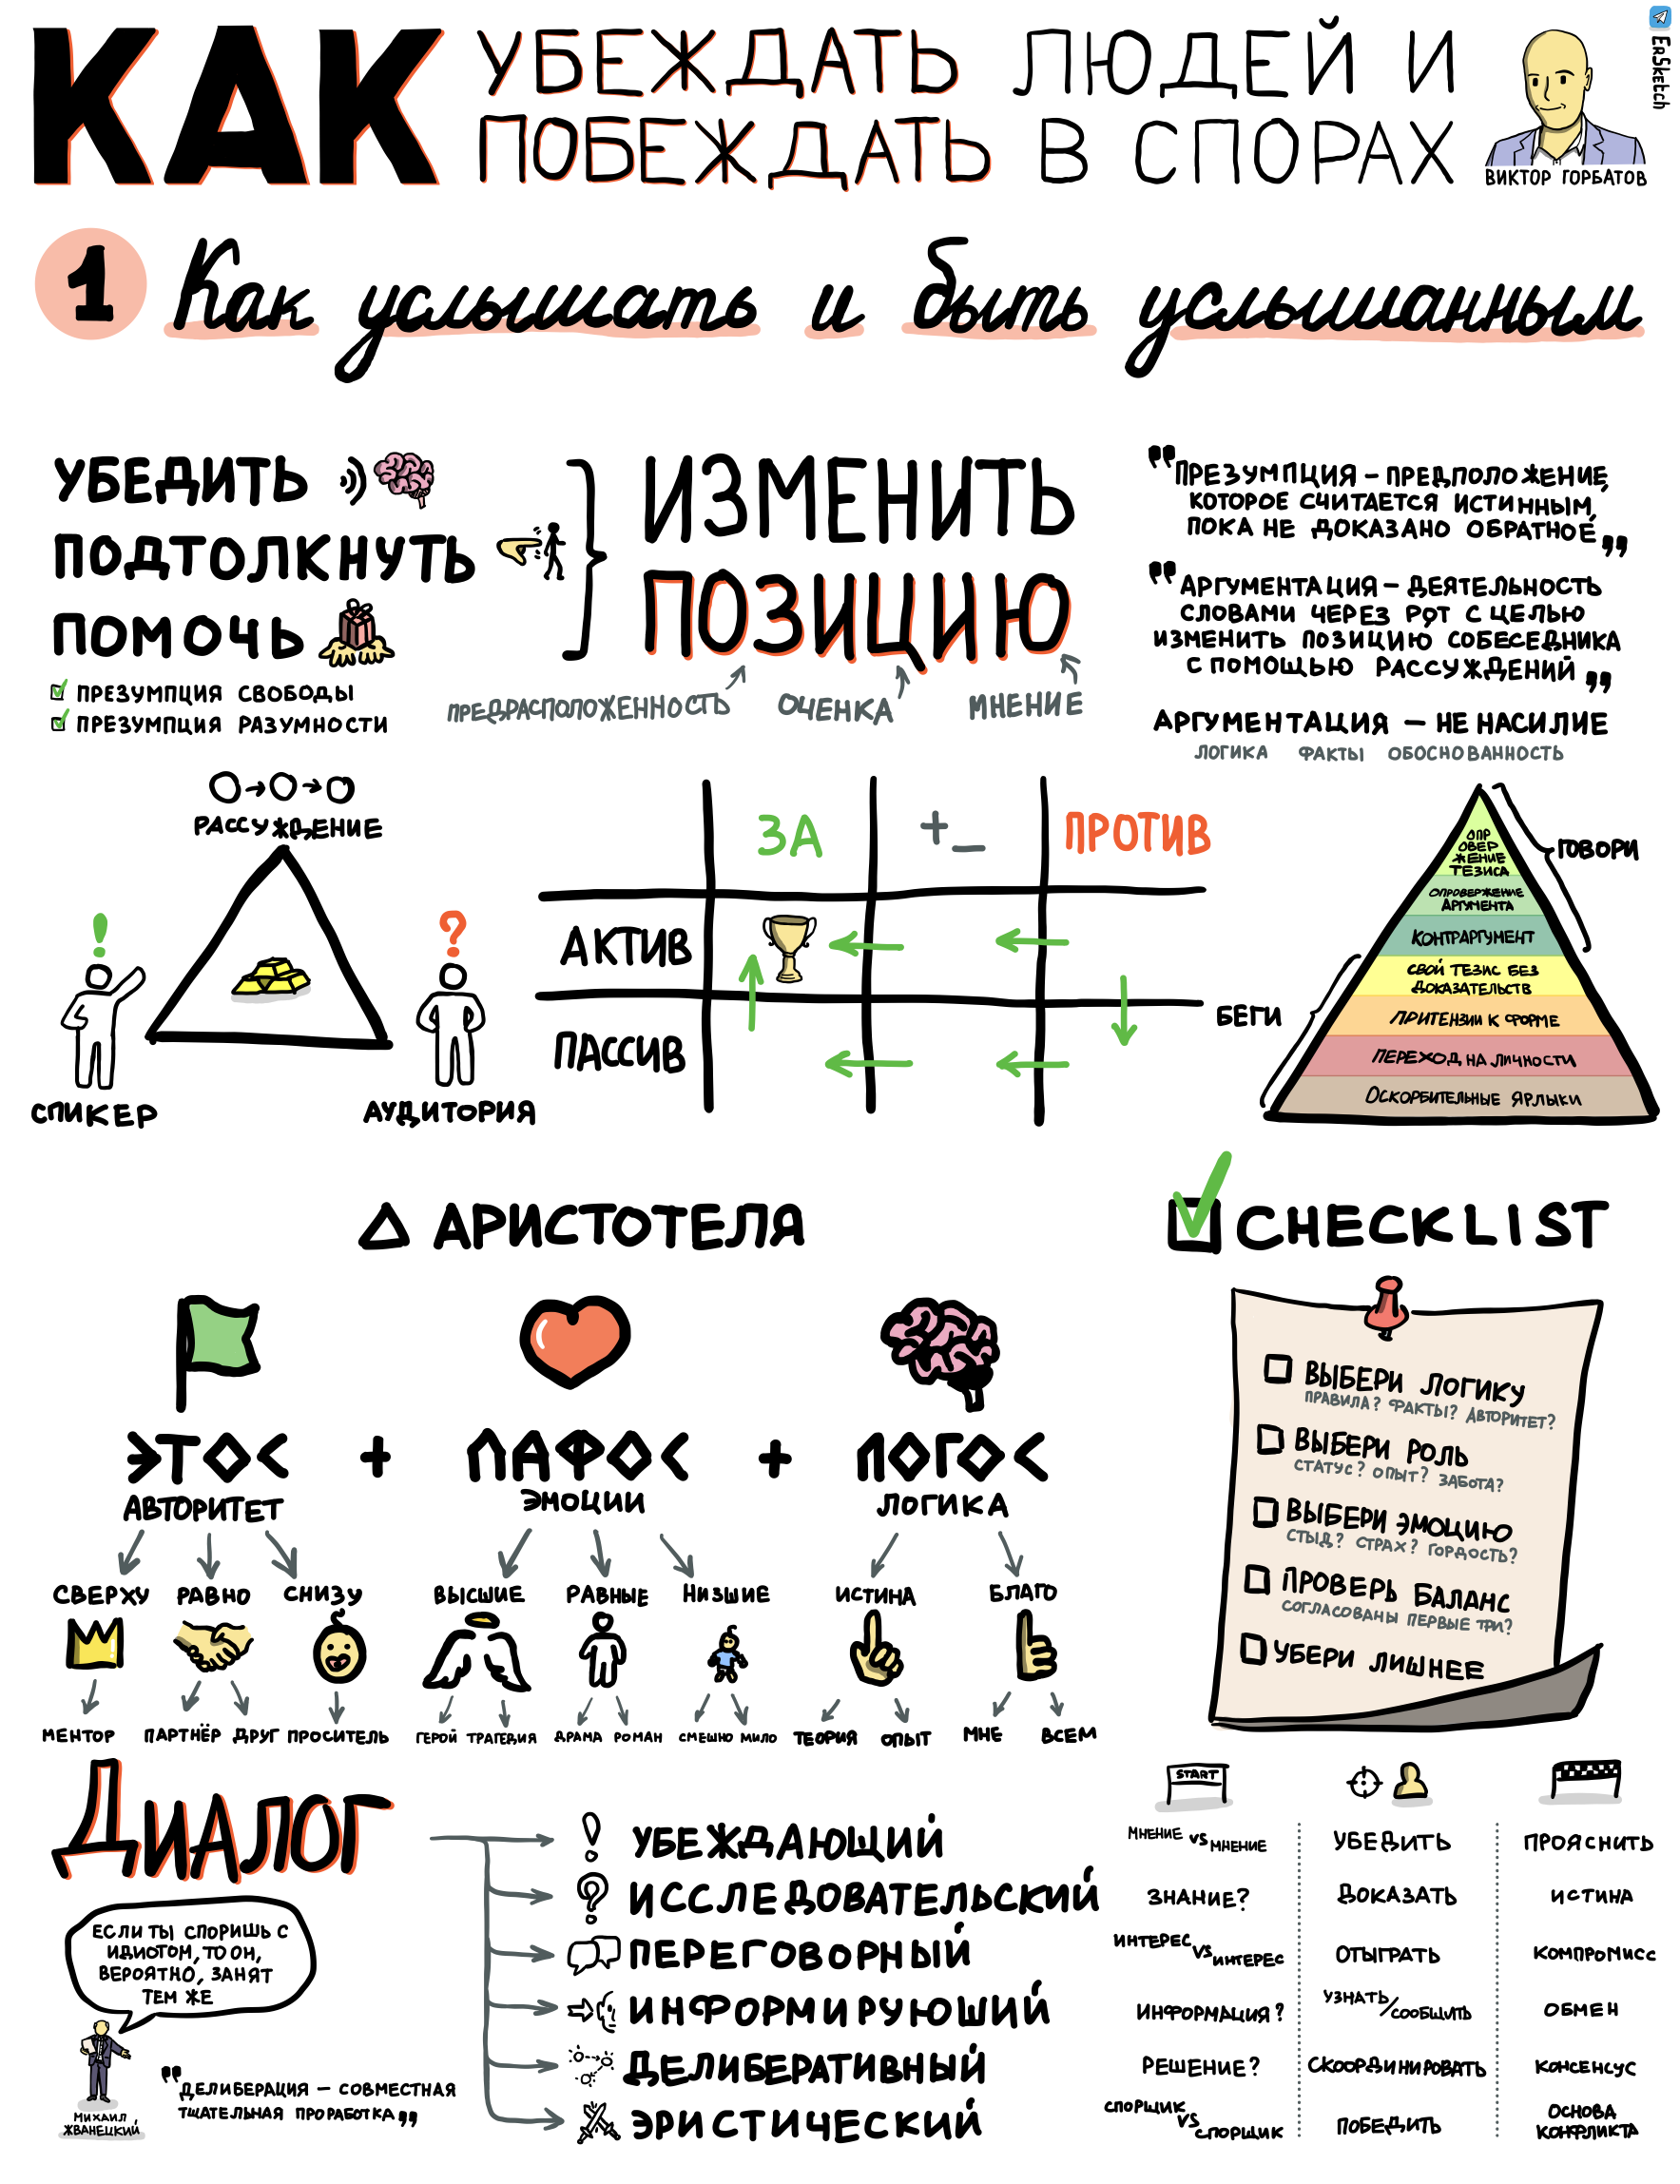 КАК УБЕЖДАТЬ ЛЮДЕЙ И
ПОБЕЖДАТЬ В СПОРАХ
ВИКТОР ГОРБАТОВ
ErSketch
1 Как услышать и быть услышанным
УБЕДИТЬ
ПОДТОЛКНУТЬ
ПОМОЧЬ
ПРЕЗУМПЦИЯ СВОБОДЫ
ПРЕЗУМПЦИЯ РАЗУМНОСТИ
ИЗМЕНИТЬ
ПОЗИЦИЮ
ПРЕДРАСПОЛОЖЕННОСТЬ ОЦЕНКА МНЕНИЕ
"ПРЕЗУМПЦИЯ – ПРЕДПОЛОЖЕНИЕ,
КОТОРОЕ СЧИТАЕТСЯ ИСТИННЫМ,
ПОКА НЕ ДОКАЗАНО ОБРАТНОЕ"
"АРГУМЕНТАЦИЯ – ДЕЯТЕЛЬНОСТЬ
СЛОВАМИ ЧЕРЕЗ РОТ С ЦЕЛЬЮ
ИЗМЕНИТЬ ПОЗИЦИЮ СОБЕСЕДНИКА
С ПОМОЩЬЮ РАССУЖДЕНИЙ"
АРГУМЕНТАЦИЯ – НЕ НАСИЛИЕ
ЛОГИКА ФАКТЫ ОБОСНОВАННОСТЬ
РАССУЖДЕНИЕ
!
?
СПИКЕР
АУДИТОРИЯ
ЗА + – ПРОТИВ
АКТИВ
ПАССИВ
ГОВОРИ
БЕГИ
ОПР
ОВЕР
ЖЕНИЕ
ТЕЗИСА
ОПРОВЕРЖЕНИЕ
АРГУМЕНТА
КОНТРАРГУМЕНТ
СВОЙ ТЕЗИС БЕЗ
ДОКАЗАТЕЛЬСТВ
ПРИТЕНЗИИ К ФОРМЕ
ПЕРЕХОД НА ЛИЧНОСТИ
ОСКОРБИТЕЛЬНЫЕ ЯРЛЫКИ
△ АРИСТОТЕЛЯ
ЭТОС + ПАФОС + ЛОГОС
АВТОРИТЕТ ЭМОЦИИ ЛОГИКА
СВЕРХУ РАВНО СНИЗУ ВЫСШИЕ РАВНЫЕ НИЗШИЕ ИСТИНА БЛАГО
МЕНТОР ПАРТНЁР ДРУГ ПРОСИТЕЛЬ ГЕРОЙ ТРАГЕДИЯ ДРАМА РОМАН СМЕШНО МИЛО ТЕОРИЯ ОПЫТ МНЕ ВСЕМ
CHECKLIST
ВЫБЕРИ ЛОГИКУ
ПРАВИЛА? ФАКТЫ? АВТОРИТЕТ?
ВЫБЕРИ РОЛЬ
СТАТУС? ОПЫТ? ЗАБОТА?
ВЫБЕРИ ЭМОЦИЮ
СТЫД? СТРАХ? ГОРДОСТЬ?
ПРОВЕРЬ БАЛАНС
СОГЛАСОВАНЫ ПЕРВЫЕ ТРИ?
УБЕРИ ЛИШНЕЕ
ДИАЛОГ
ЕСЛИ ТЫ СПОРИШЬ С
ИДИОТОМ, ТО ОН,
ВЕРОЯТНО, ЗАНЯТ
ТЕМ ЖЕ
МИХАИЛ
ЖВАНЕЦКИЙ
"ДЕЛИБЕРАЦИЯ – СОВМЕСТНАЯ
ТЩАТЕЛЬНАЯ ПРОРАБОТКА"
START
! УБЕЖДАЮЩИЙ МНЕНИЕ VS МНЕНИЕ УБЕДИТЬ ПРОЯСНИТЬ
? ИССЛЕДОВАТЕЛЬСКИЙ ЗНАНИЕ? ДОКАЗАТЬ ИСТИНА
ПЕРЕГОВОРНЫЙ ИНТЕРЕС VS ИНТЕРЕС ОТЫГРАТЬ КОМПРОМИСС
ИНФОРМИРУЮШИЙ ИНФОРМАЦИЯ? УЗНАТЬ/СООБЩИТЬ ОБМЕН
ДЕЛИБЕРАТИВНЫЙ РЕШЕНИЕ? СКООРДИНИРОВАТЬ КОНСЕНСУС
ЭРИСТИЧЕСКИЙ СПОРЩИК VS СПОРЩИК ПОБЕДИТЬ ОСНОВА
КОНФЛИКТА